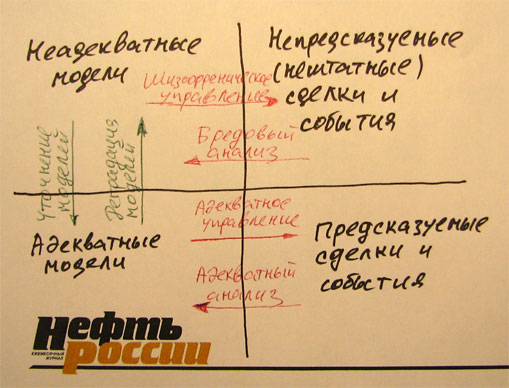 Неадекватные
модели
Непредсказуемые
(нештатные)
сделки и
события
Шизофреническое
управление
Бредовый
анализ
Уточнение
моделей
Деградация
моделей
Адекватные
модели
Адекватное
управление
Адекватный
анализ
Предсказуемые
сделки и
события
Нефть
ЕЖЕМЕСЯЧНЫЙ
ЖУРНАЛ
россии